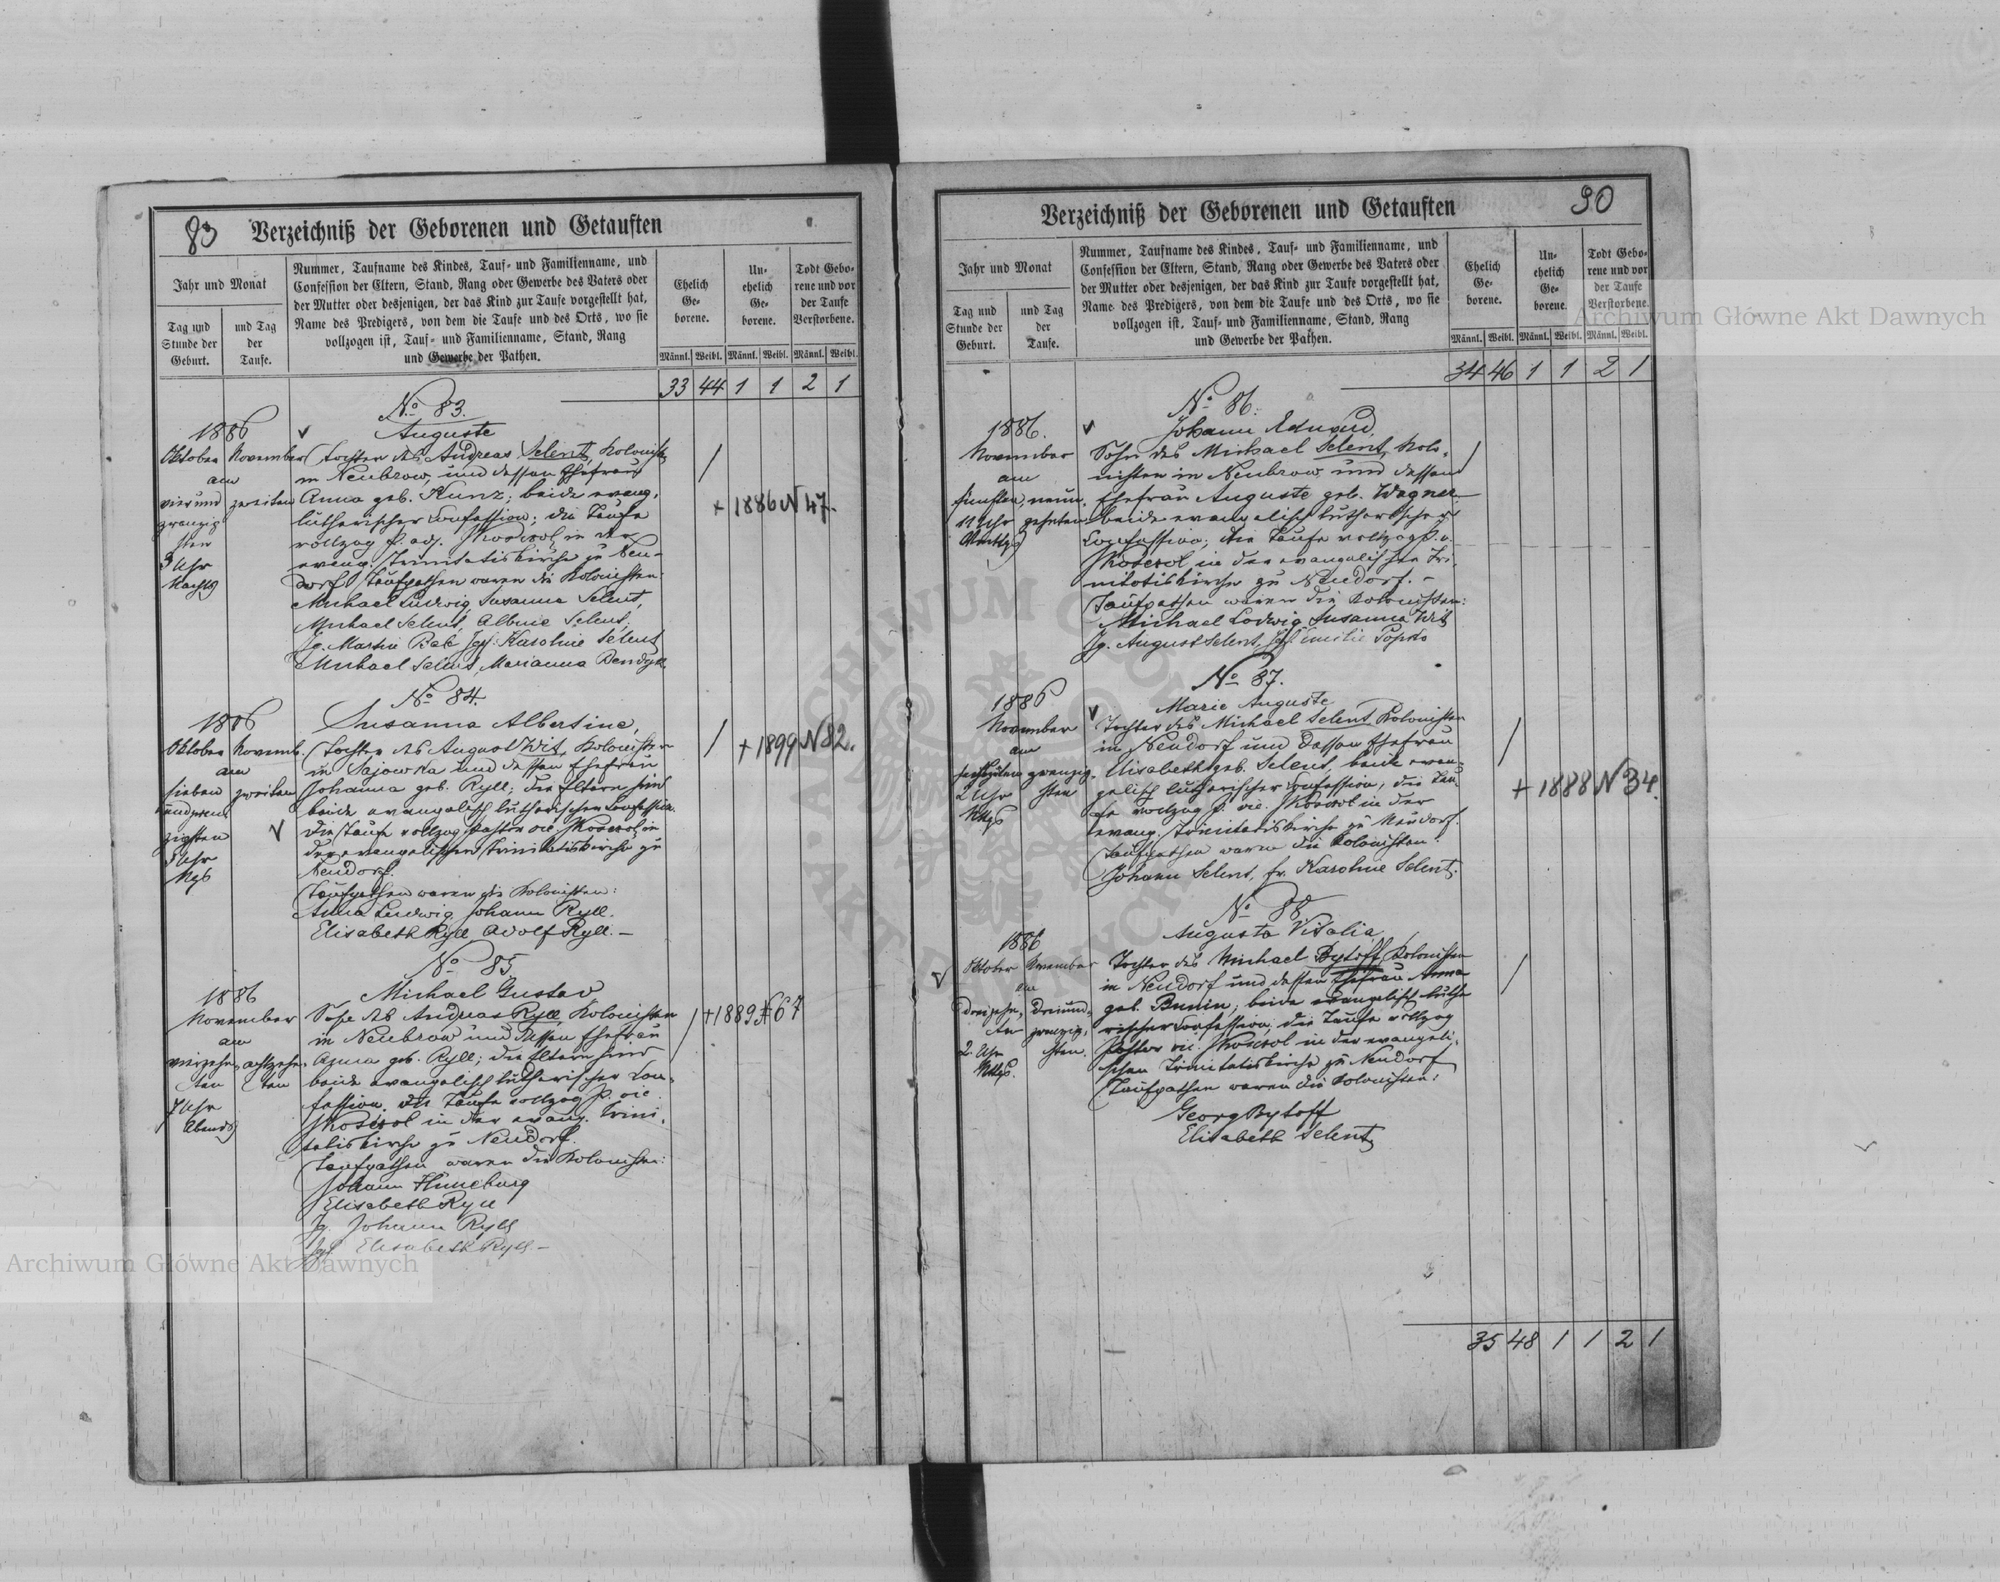 83 Verzeichniß der Geborenen und Getauften
Jahr und Monat
Tag und Stunde der Geburt.
und Tag der Taufe.
Nummer, Taufname des Kindes, Tauf- und Familienname, und
Confession der Eltern, Stand, Rang oder Gewerbe des Vaters oder
der Mutter oder desjenigen, der das Kind zur Taufe vorgestellt hat,
Name des Predigers, von dem die Taufe und des Orts, wo sie
vollzogen ist, Tauf- und Familienname, Stand, Rang
und Gewerbe der Pathen.
Ehelich Ge- borene.
Un- ehelich Ge- borene.
Todt Gebo- rene und vor der Taufe Verstorbene.
Männl. Weibl. Männl. Weibl. Männl. Weibl.
33 44 1 1 2 1
No 83.
Auguste
1886
Oktober November
am
vier und zweiten
zwanzig
sten
3 Uhr
Nachts
Tochter des Andreas Selent, Kolonisten
in Neubrow, und dessen Ehefrau
Anna geb. Kunz; beide evang.
lutherischer Confession; die Taufe
vollzog p. adj. in der
evang. Trinitatiskirche zu Neu-
dorf. Taufpathen waren die Kolonisten:
Michael Ludwig, Susanna Selent,
Michael Selent, Albine Selent,
Jg. Martin Jgf. Karoline Selent
Michael Selent, Marianna
/
+ 1886 N 47.
No 84.
Susanna Albertine,
1886
Oktober Novemb.
am
sieben zweiten
und zwan
zigsten
Uhr
Mgs
Tochter des August Wit, Kolonisten
in Sajowka und dessen Ehefrau
Johanna geb. Ryll; die Eltern sind
beide evangelisch lutherischer Confession.
Die Taufe vollzog Pastor vic. in
der evangelischen Trinitatiskirche zu
Neudorf.
Taufpathen waren die Kolonisten:
Anna Ludwig, Johann Ryll.
Elisabeth Ryll, Adolf Ryll. –
/
+ 1899 N 82.
No 85.
Michael Gustav
1886
November
am
vierzehn achtzehn
ten ten
7 Uhr
Abends
Sohn des Andreas Ryll, Kolonisten
in Neubrow und dessen Ehefrau
Anna geb. Ryll; die Eltern sind
beide evangelisch lutherischer Con-
fession. die Taufe vollzog p. vic.
in der evang. Trini-
tatiskirche zu Neudorf.
Taufpathen waren die Kolonisten:
Johann
Elisabeth Ryll
Jg. Johann Ryll
Jgf. Elisabeth Ryll –
/
+ 1889 # 67
Verzeichniß der Geborenen und Getauften 90
Jahr und Monat
Tag und Stunde der Geburt.
und Tag der Taufe.
Nummer, Taufname des Kindes, Tauf- und Familienname, und
Confession der Eltern, Stand, Rang oder Gewerbe des Vaters oder
der Mutter oder desjenigen, der das Kind zur Taufe vorgestellt hat,
Name des Predigers, von dem die Taufe und des Orts, wo sie
vollzogen ist, Tauf- und Familienname, Stand, Rang
und Gewerbe der Pathen.
Ehelich Ge- borene.
Un- ehelich Ge- borene.
Todt Gebo- rene und vor der Taufe Verstorbene.
Männl. Weibl. Männl. Weibl. Männl. Weibl.
34 46 1 1 2 1
No 86.
Johann Eduard.
1886.
November
am
fünften, neun-
11 Uhr zehnten
Sohn des Michael Selent, Kolo-
nisten in Neubrow und dessen
Ehefrau Auguste geb. Wagner
beide evangelisch lutherischer
Confession; die Taufe vollzog p. v.
in der evangelischen Tri-
nitatiskirche zu Neudorf. –
Taufpathen waren die Kolonisten:
Michael Ludwig, Susanna Wit
Jg. August Selent, Jgf. Emilie
/
No 87.
Marie Auguste
1886
November
am
sechszehnten zwanzig-
2 Uhr sten
Mgs
Tochter des Michael Selent, Kolonisten
in Neudorf und dessen Ehefrau
Elisabeth geb. Selent, beide evan-
gelisch lutherischer Confession; die Tau-
fe vollzog p. vic. in der
evang. Trinitatiskirche zu Neudorf.
Taufpathen waren die Kolonisten:
Johann Selent, fr. Karoline Selent.
/
+ 1888 N 34.
No 88
Augusta Vitalia
1886
Oktober November
am
dreizehn, dreiund-
ten zwanzig-
2 Uhr sten.
Tochter des Michael Bytoff, Kolonisten
in Neudorf und dessen Ehefrau Anna
geb. Bunin; beide evangelisch luthe
rischer Confession; die Taufe vollzog
Pastor vic. in der evangeli-
schen Trinitatiskirche zu Neudorf
Taufpathen waren die Kolonisten:
Georg Bytoff
Elisabeth Selent
/
35 48 1 1 2 1
Archiwum Główne Akt Dawnych
Archiwum Główne Akt Dawnych